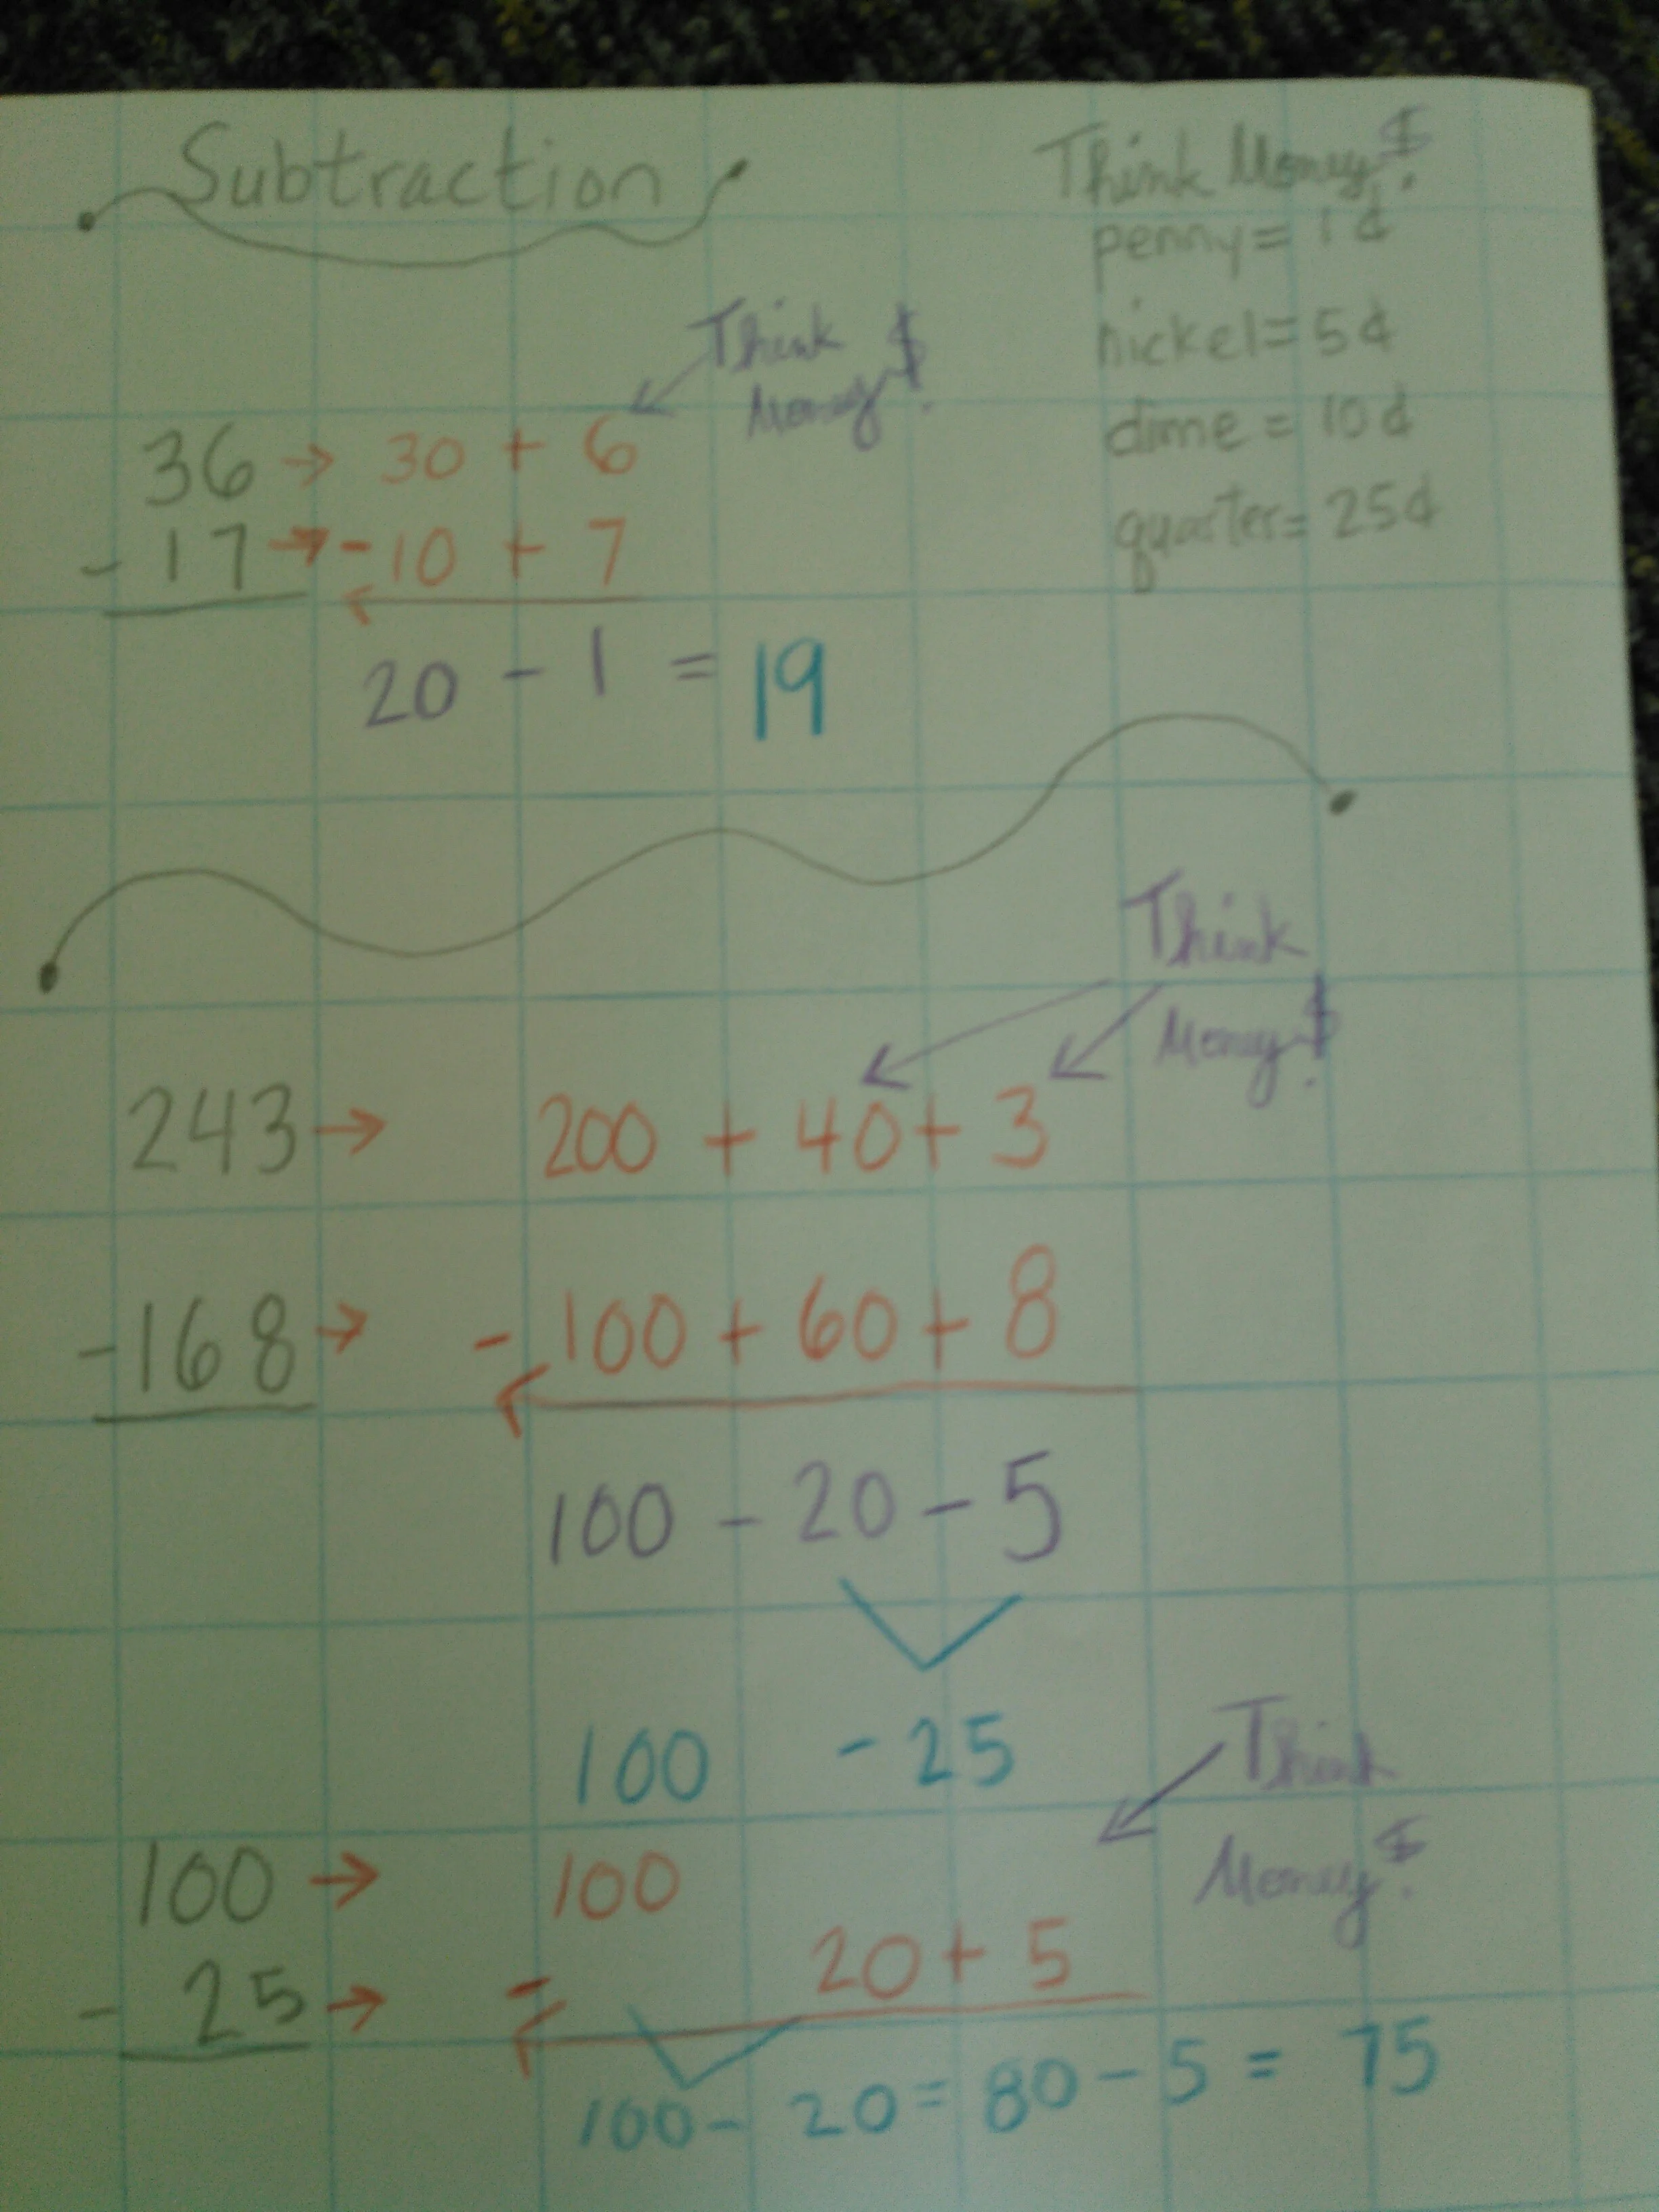 Subtraction
Think Money $!
penny = 1¢
nickel = 5¢
dime = 10¢
quarter = 25¢
Think
Money $!
36 → 30 + 6
- 17 → - 10 + 7
20 - 1 = 19
Think
Money $!
243 → 200 + 40 + 3
- 168 → - 100 + 60 + 8
100 - 20 - 5
100 - 25
Think
Money $!
100 → 100
- 25 → - 20 + 5
100 - 20 = 80 - 5 = 75